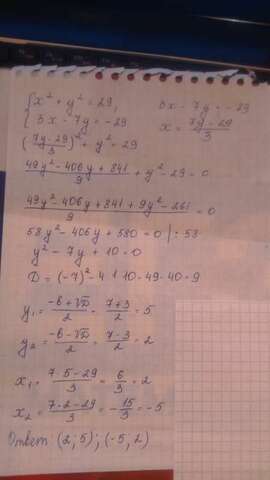 {x² + y² = 29,    3x - 7y = -29
{3x - 7y = -29    x = (7y - 29)/3
((7y-29)/3)² + y² = 29
(49y² - 406y + 841)/9 + y² - 29 = 0
(49y² - 406y + 841 + 9y² - 261)/9 = 0
58y² - 406y + 580 = 0 |: 58
y² - 7y + 10 = 0
D = (-7)² - 4·1·10 = 49 - 40 = 9
y₁ = (-b+√D)/2 = (7+3)/2 = 5
y₂ = (-b-√D)/2 = (7-3)/2 = 2
x₁ = (7·5-29)/3 = 6/3 = 2
x₂ = (7·2-29)/3 = -15/3 = -5
Ответ (2; 5); (-5, 2)